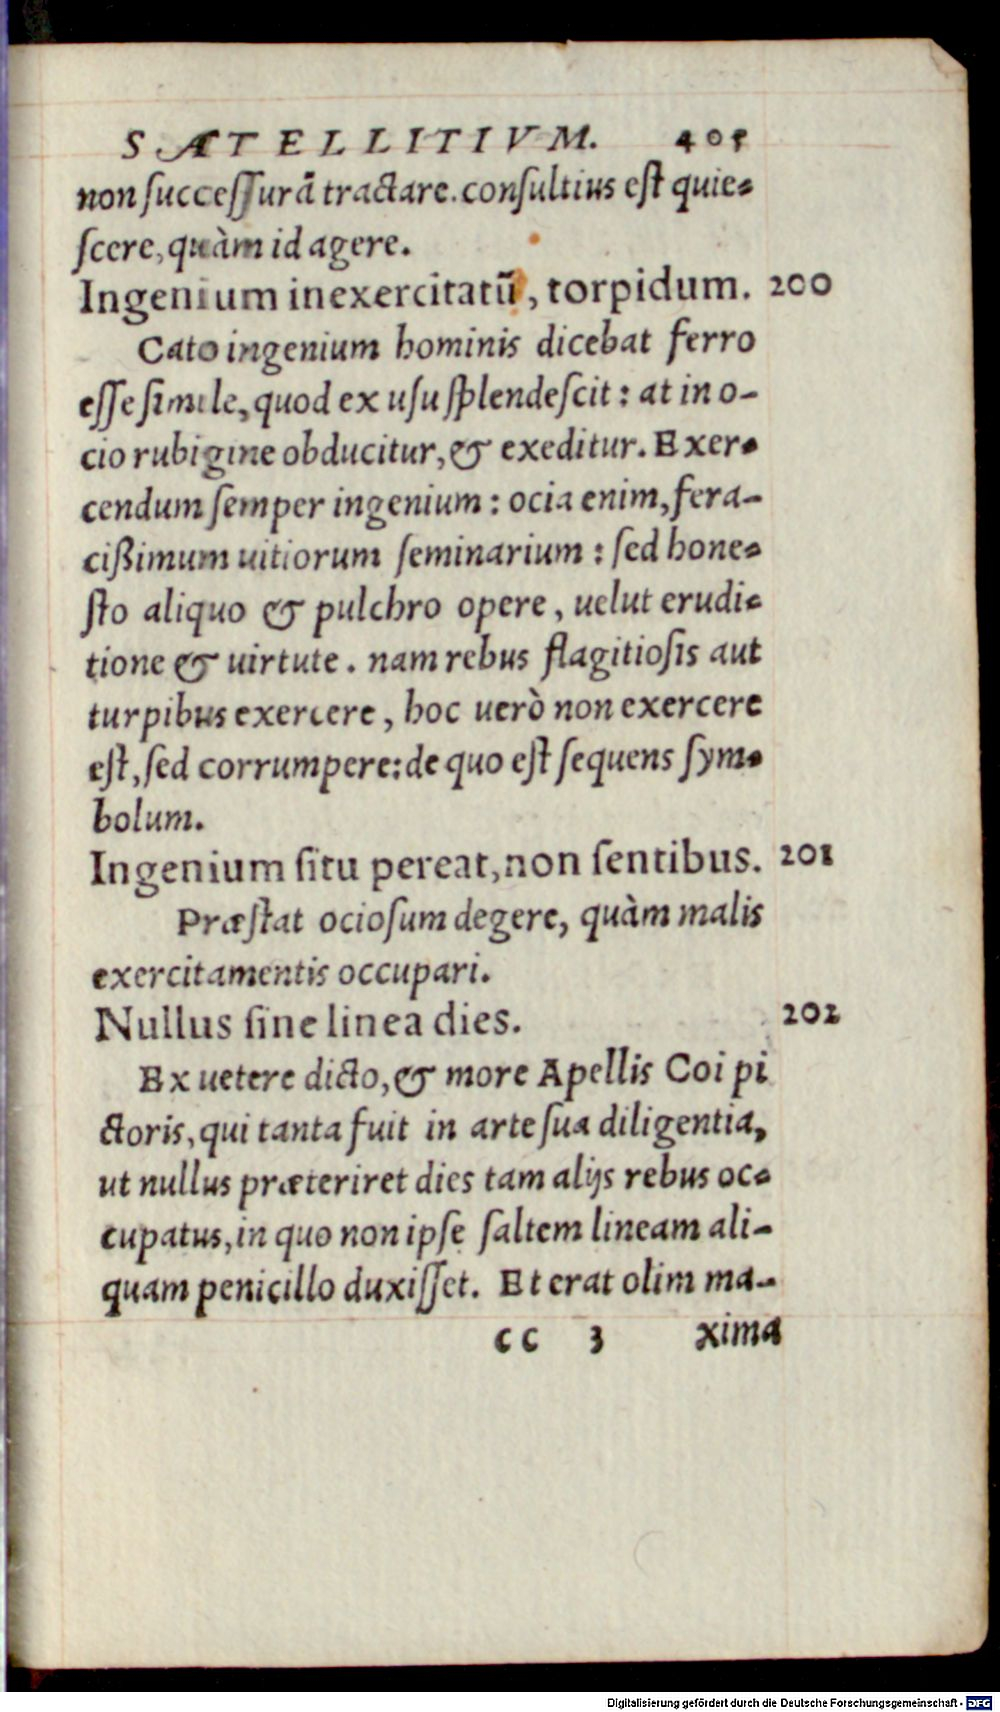 SATELLITIVM. 405
non successurā tractare. consultius est quie-
scere, quàm id agere.
Ingenium inexercitatū, torpidum. 200
Cato ingenium hominis dicebat ferro
esse simile, quod ex usu splendescit: at in o-
cio rubigine obducitur, & exeditur. Exer-
cendum semper ingenium: ocia enim, fera-
cißimum uitiorum seminarium: sed hone-
sto aliquo & pulchro opere, uelut erudi-
tione & uirtute. nam rebus flagitiosis aut
turpibus exercere, hoc uerò non exercere
est, sed corrumpere: de quo est sequens sym-
bolum.
Ingenium situ pereat, non sentibus. 201
Præstat ociosum degere, quàm malis
exercitamentis occupari.
Nullus sine linea dies. 202
Ex uetere dicto, & more Apellis Coi pi
ctoris, qui tanta fuit in arte sua diligentia,
ut nullus præteriret dies tam alijs rebus oc-
cupatus, in quo non ipse saltem lineam ali-
quam penicillo duxisset. Et erat olim ma-
cc 3 xima
Digitalisierung gefördert durch die Deutsche Forschungsgemeinschaft - DFG